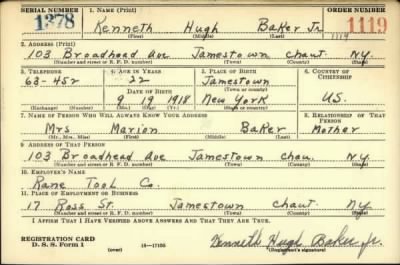 SERIAL NUMBER 1. NAME (Print) ORDER NUMBER
1378 Kenneth Hugh Baker Jr 1119
(First) (Middle) (Last) 1119
2. ADDRESS (Print)
103 Broadhead Ave Jamestown Chaut. N.Y.
(Number and street or R. F. D. number) (Town) (County) (State)
3. TELEPHONE 4. AGE IN YEARS 5. PLACE OF BIRTH 6. COUNTRY OF CITIZENSHIP
63-452 22 Jamestown
(Town or county)
DATE OF BIRTH
9 19 1918 New York U.S.
(Exchange) (Number) (Mo.) (Day) (Yr.) (State or country)
7. NAME OF PERSON WHO WILL ALWAYS KNOW YOUR ADDRESS 8. RELATIONSHIP OF THAT PERSON
Mrs Marion Baker Mother
(Mr., Mrs., Miss) (First) (Middle) (Last)
9. ADDRESS OF THAT PERSON
103 Broadhead Ave Jamestown Chau. N.Y.
(Number and street or R. F. D. number) (Town) (County) (State)
10. EMPLOYER'S NAME
Rane Tool Co.
11. PLACE OF EMPLOYMENT OR BUSINESS
17 Ross St. Jamestown Chaut N.Y.
(Number and street or R. F. D. number) (Town) (County) (State)
I AFFIRM THAT I HAVE VERIFIED ABOVE ANSWERS AND THAT THEY ARE TRUE.
REGISTRATION CARD
D. S. S. Form 1 (over) 16—17105 Kenneth Hugh Baker Jr.
(Registrant's signature)